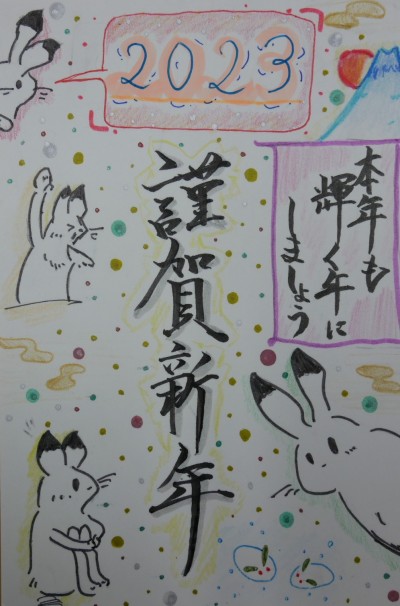 2023
謹賀新年
本年も
輝く年に
しましょう